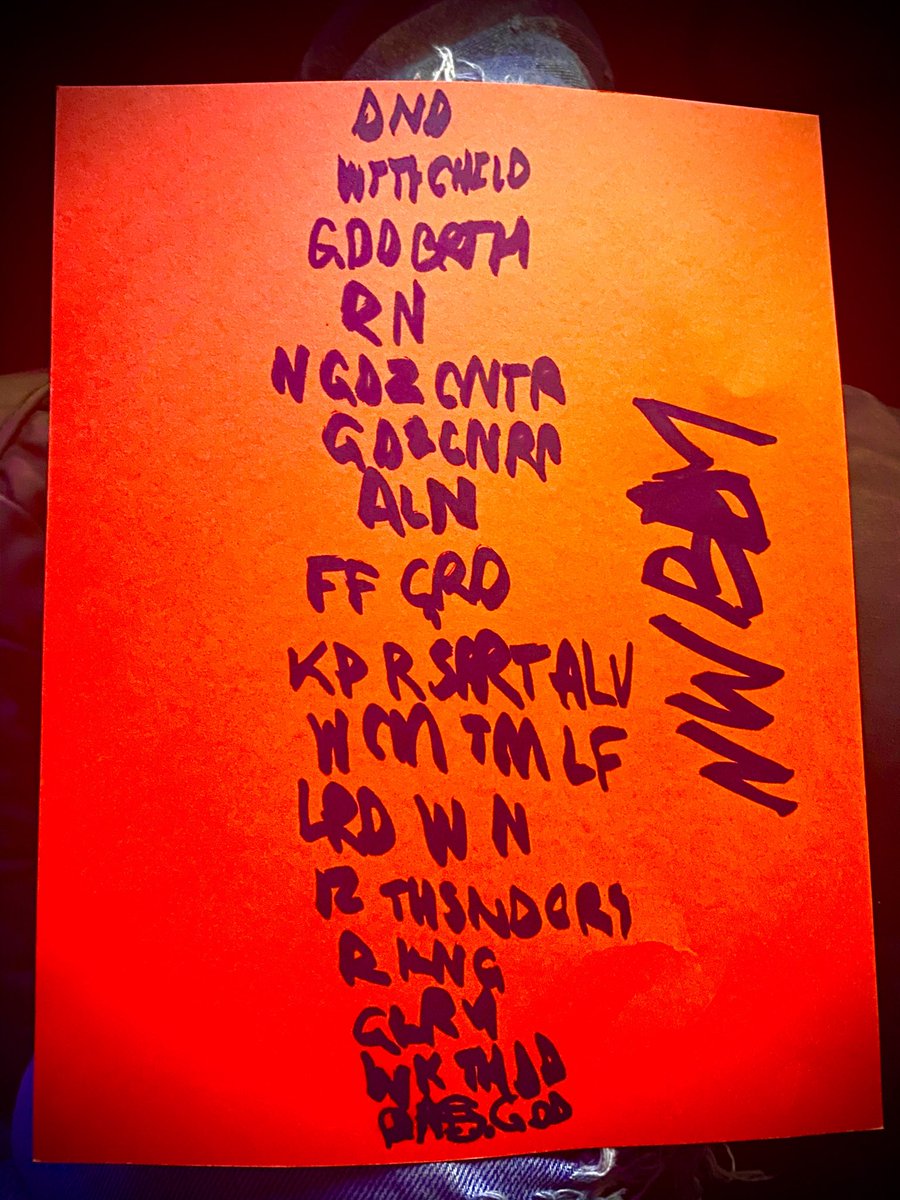 DND
WITH CHILD
GDD BRTH
RN
N GDZ CNTR
GDZ CNRR
ALN
FF GRD
KP R SHRT ALV
W CM TM LF
LRD W N
R THSND QRS
R KNG
GLRY
WK TH DD
GDD
NWBDM